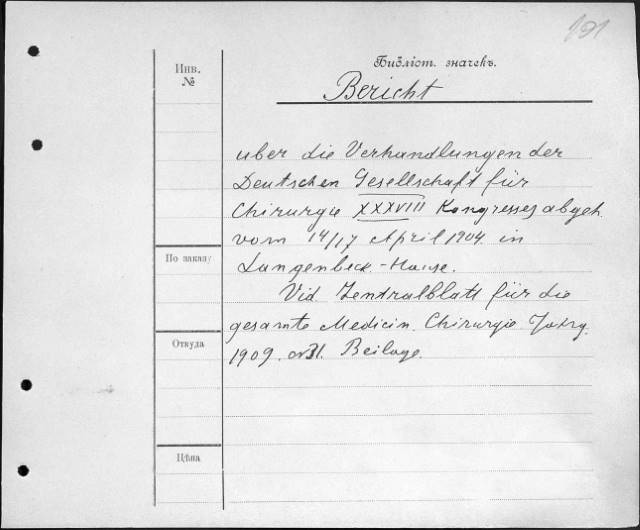 191
Библіот. значекъ.
Инв.
№
Bericht
uber die Verhandlungen der
Deutschen Gesellschaft für
Chirurgie XXXVIII Kongresses abgeh.
vom 14/17 April 1904 in
По заказу
Langenbeck-Hause.
Vid. Zentralblatt für die
gesamte Medicin. Chirurgie Jahrg.
Откуда
1909. №31. Beilage.
Цѣна